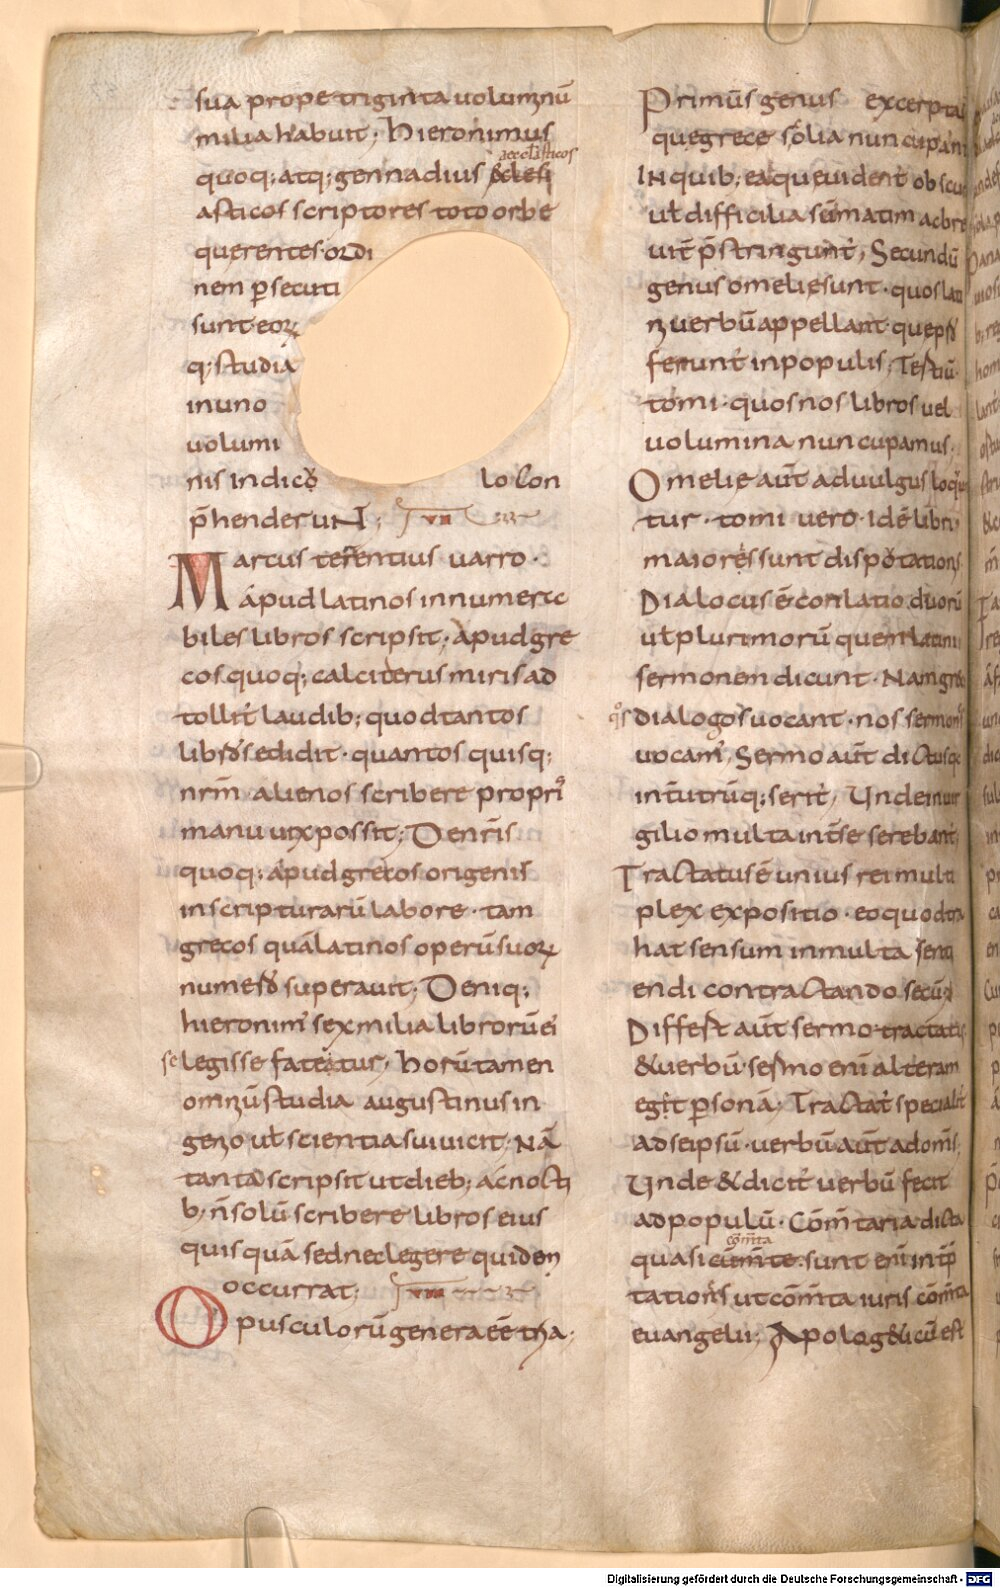 sua prope triginta uolum̄nū
milia habuit; Hieronimus
aecclīsticos
quoq; atq; gennadius &clesi
asticos scriptores toto orbe
querentes · ordi
nem ꝑsecuti
sunt eoꝝ
q; studia
in uno
uolumi
nis indicŏ lo con
p̄henderuNT; VII
Marcus terentius uarro ·
apud latinos innumera
biles libros scripsit; apud gre
cos quoq; calciterus miris ad
tollit̉ laudib; quod tantos
libros edidit · quantos quisq;
nr̄m alienos scribere propri
manu uix possit; De nr̄is
quoq; apud grecos origenis
in scripturarū labore · tam
grecos quā latinos operū suoꝝ
numero superauit; Deniq;
hieronim̉ sex milia librorū ei
se legisse fateatur; horū tamen
omniū studia augustinus in
genio ut̄ scientia sui uicit; Nā
tanta scripsit ut dieb; ac nocti
b; n̄ solū scribere libros eius
quisquā sed nec legere quidem
occurrat; VIII
Opusculorū genera eē tria ·
Primū genus excerpta
que grece scolia nuncupant
IN quib; ea que uident̉ obscu
ut̄ difficilia sūmatim ac bre
uit̄ p̄stringunt̉; Secundū
genus omelie sunt · quos lati
ni uerbū appellant · que pfe
ferunt̉ in populis; Tertiū ·
tomi · quos nos libros uel
uolumina nuncupamus;
Omelie aūt ad uulgus loqu
tur · tomi uero · idē libri ·
maiores sunt disputations
Dialocus ē conlatio duorū
ut̄ plurimorū quem latini
sermonem dicunt · Nam gre
q̊s dialogos uocant · nos sermon̄s
uocam̉; Sermo aūt dictus q̄
int̄ utrūq; serit̉; Unde in uir
gilio multa int̄ se serebant
Tractatus ē unius rei multi
plex expositio · eo quod tra
hat sensum in multa sentī
endi contractando secū;
Differt aūt sermo tractatus
& uerbū · sermo enī alteram
egit ꝑsonā; Tractat̉ specialit̄
ad seipsū · uerbū aūt ad om̄s;
Unde & dicit̉ uerbū fecit
ad populū · Cōm̄taria dicta
cōm̄ta
quasi cūm̄te · sunt enī int̄p̄
tations ut cōm̄ta iuris cōm̄ta
euangelii; Apolog&icū est